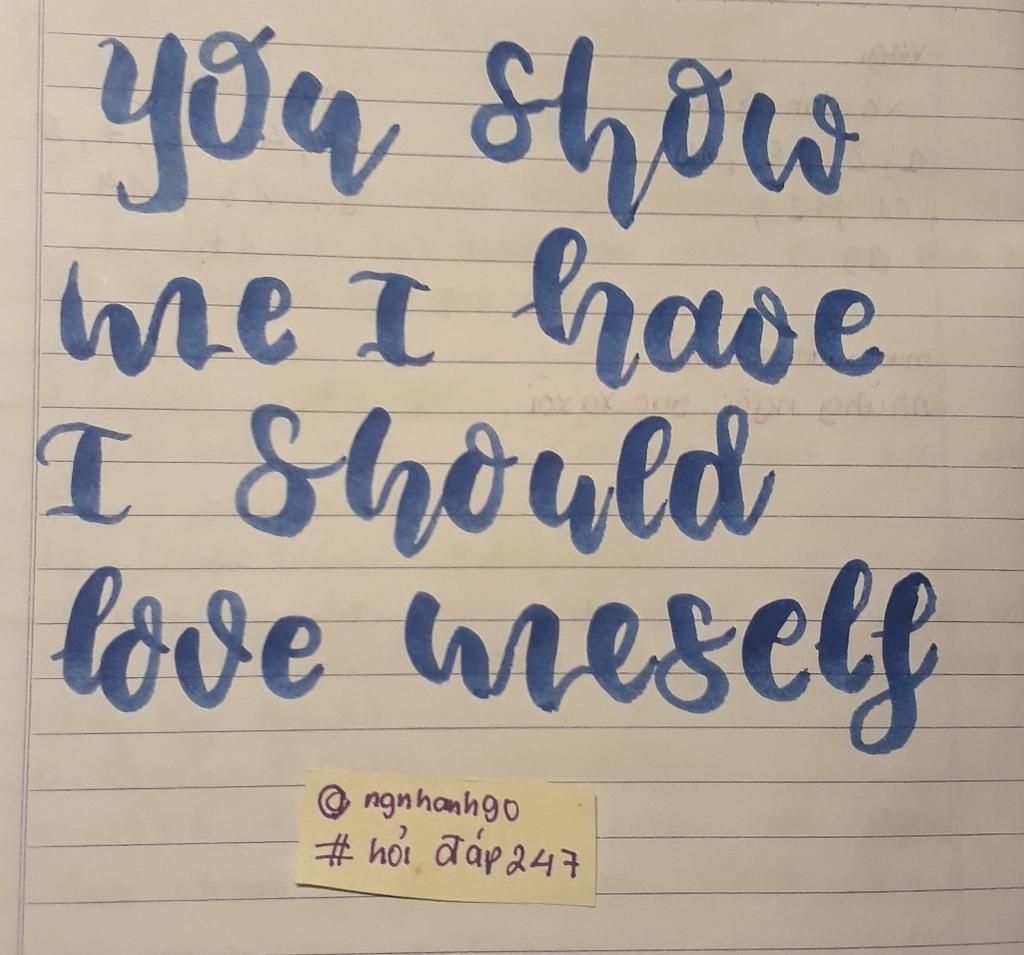 you show
me I have
I should
love meself
@ ngnhanh90
# hỏi đáp247